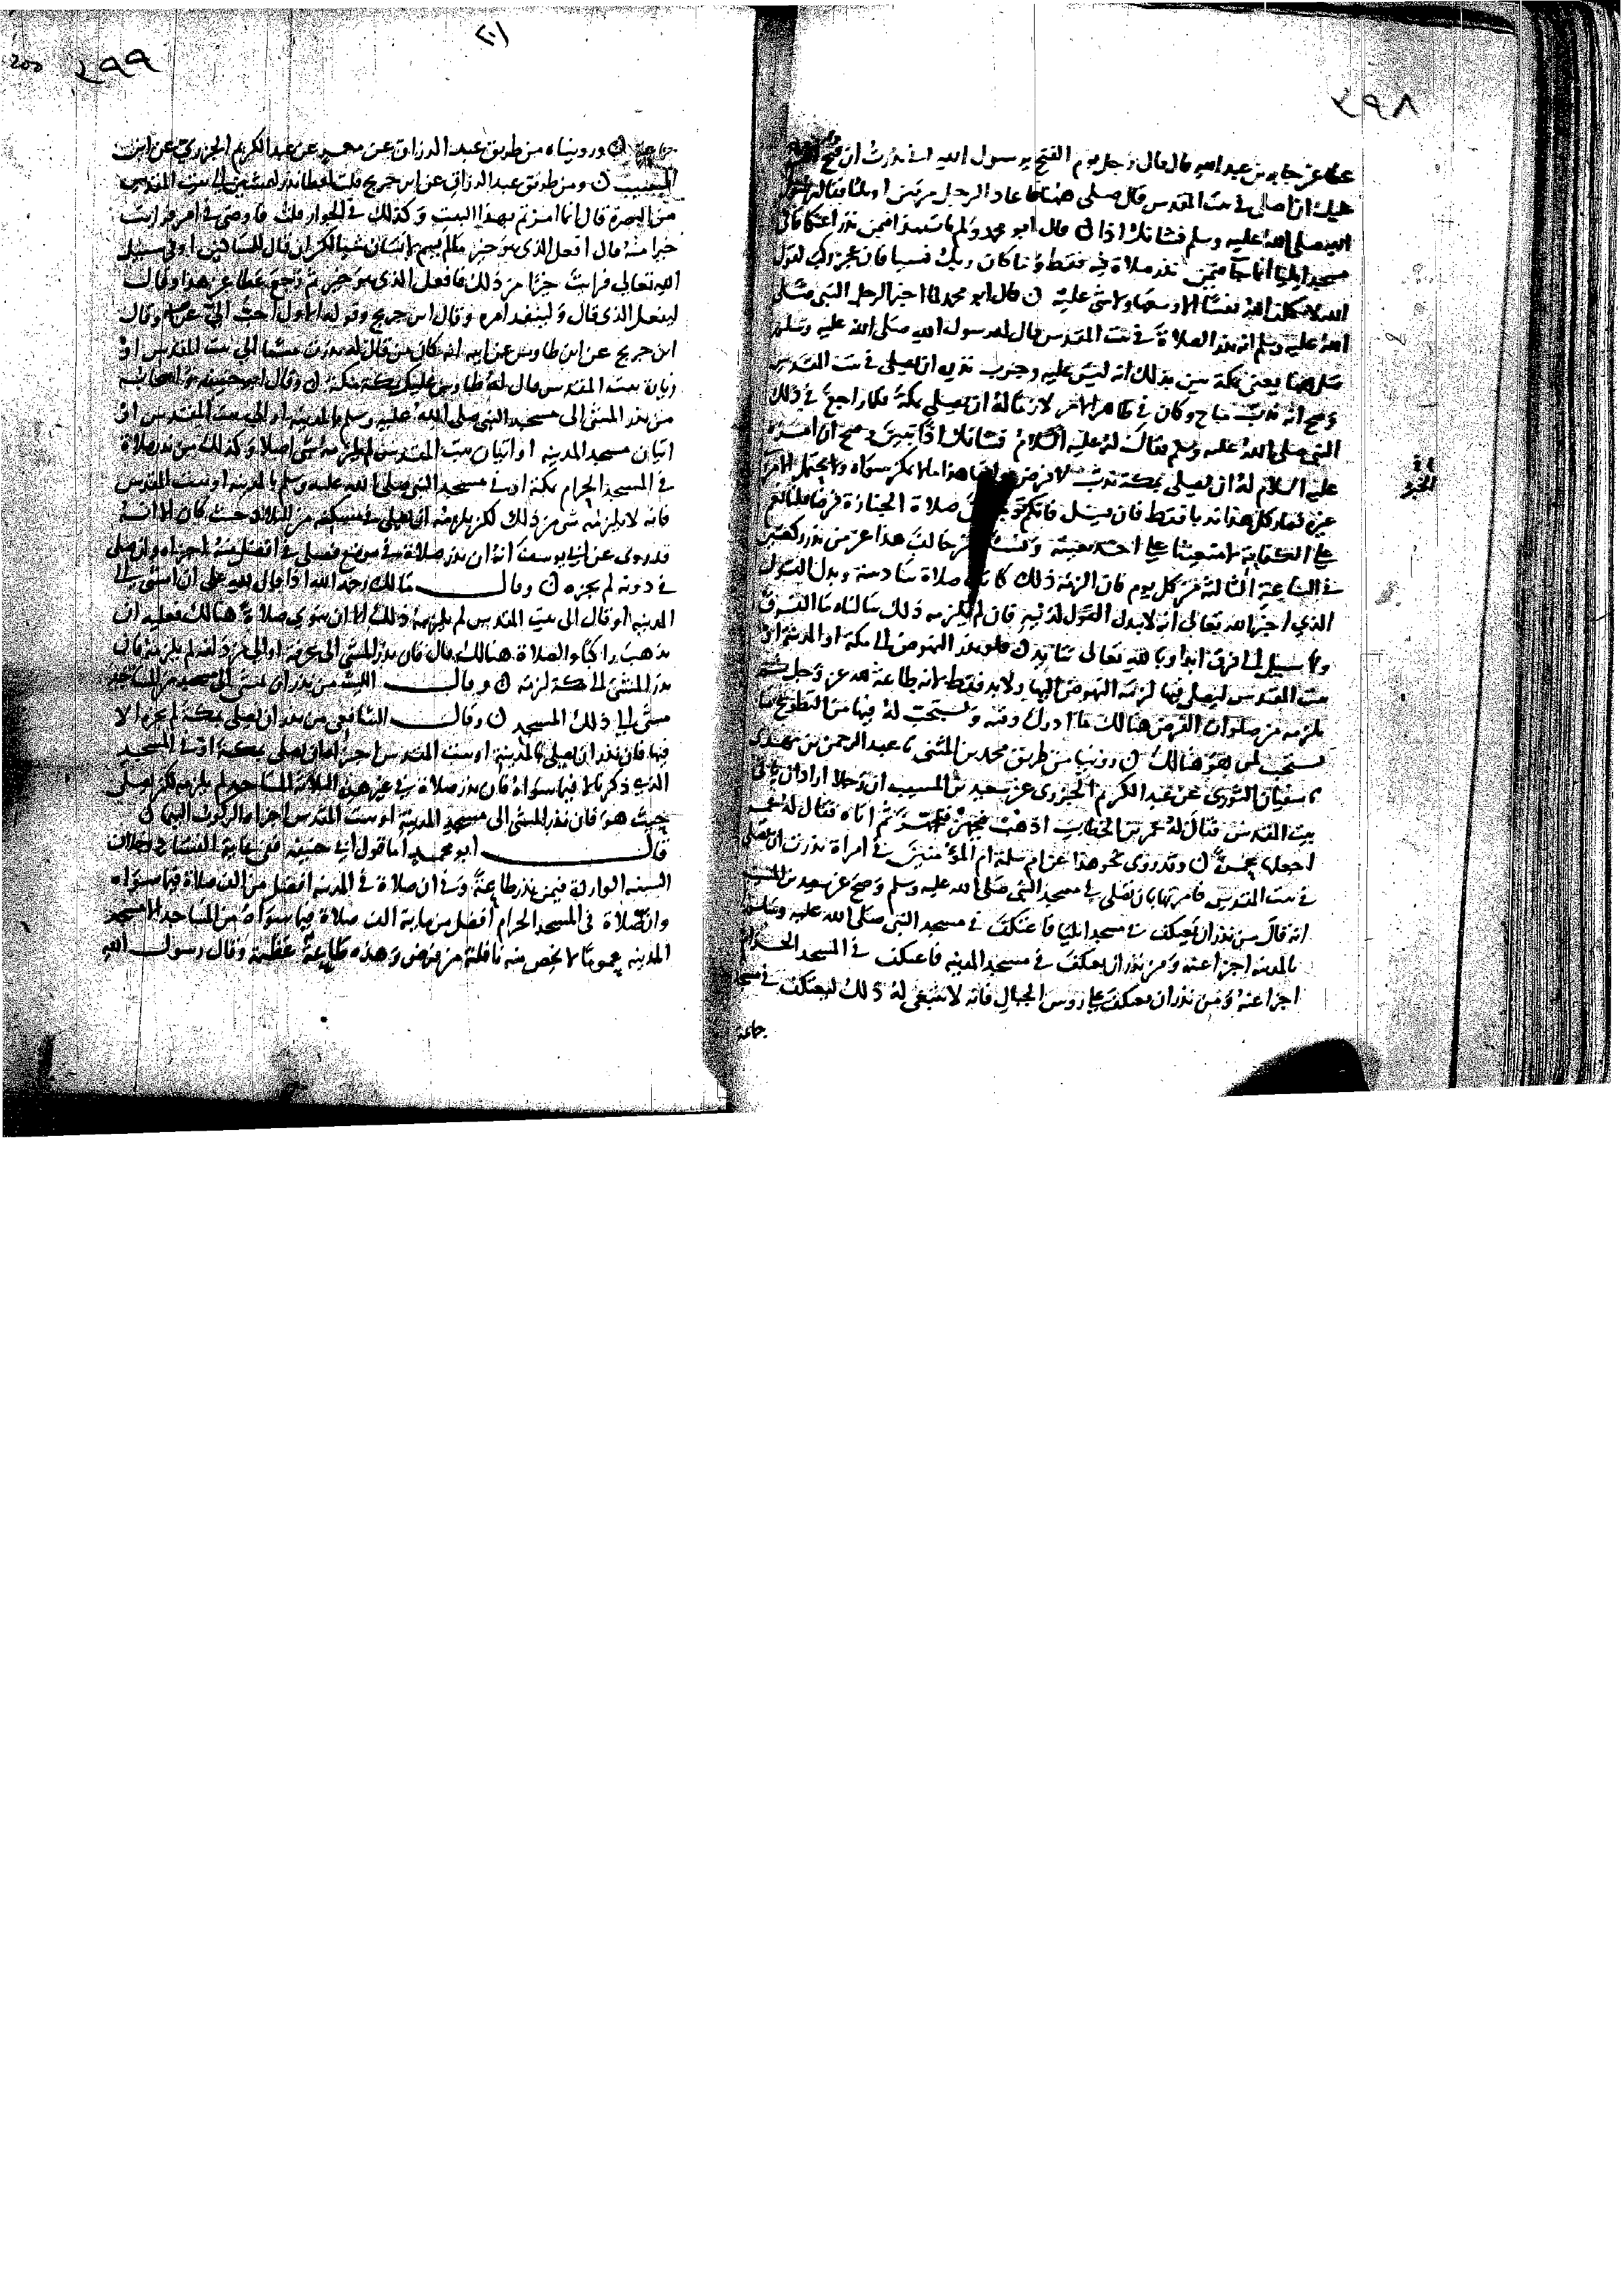 ٢٩٨
عطا عن جابر بن عبد الله قال قال رجل يوم الفتح يرسول الله اني نذرت ان فتح الله
عليك ان اصلي في بيت المقدس قال صلي هنا فاعاد الرجل مرتين او ثلثا فقال له رسول
الله صلى الله عليه وسلم فشانك اذا ن قال ابو محمد ولم يات هذا فيمن نذر اعتكافا في
مسجد ايليا انما جا فيمن نذر صلاة فيه فقط وما كان ربك نسيا فان عجز ركب لقول
الله لا يكلف الله نفسا الا وسعها ولا شي عليه ن قال ابو محمد لما اخبر الرجل النبي صلى
الله عليه وسلم انه نذر الصلاة في بيت المقدس قال له رسول الله صلى الله عليه وسلم
صل هنا يعني بمكة تبين بذلك انه ليس عليه وجوب نذره ان يصلي في بيت المقدس
وصح انه ندب مباح وكان في ظاهر الامر لازما له ان يصلي بمكة فكما راجع في ذلك
النبي صلى الله عليه وسلم فقال له عليه السلام فشانك اذا تبين وصح ان امره
عليه السلام له ان يصلي بمكة ندب لا فرض هذا ما لا يمكن سواه ولا يحتمل الامر
غيره فصار كل هذا ندبا فقط فان قيل فانكم صلاة الجنازة فرضا قلنا نعم
على الكفاية لا متعينا على احد بعينه هذا عن من نذر ركعتين
في الساعة الثالثة من كل يوم فان الزمه ذلك كانت صلاة سادسة وبدل القول
الذي اخبر الله تعالى انه لا يبدل القول لديه فان لم يلزمه ذلك سالناه ما الفرق
ولا سبيل الى فرق ابدا وبالله تعالى نتايد ن فلو نذر النهوض الى مكة او المدينة او
بيت المقدس ليصلي فيها لزمه النهوض اليها ولا بد فقط لانه طاعة لله عز وجل ثم
يلزمه من صلوات الفرض هنالك ما ادرك وقته ويستحب له فيها من التطوع ما
يستحب لمن هو هنالك ن روينا من طريق محمد بن المثنى نا عبد الرحمن بن مهدي
نا سفيان الثوري عن عبد الكريم الجزري عن سعيد بن المسيب ان رجلا اراد ان ياتي
بيت المقدس فقال له عمر بن الخطاب اذهب فتجهز فتجهز ثم اتاه فقال له عمر
اجعلها عمرة ن وقد روي نحو هذا عن ام سلمة ام المؤمنين في امراة نذرت ان تصلي
في بيت المقدس فامرتها بان تصلي في مسجد النبي صلى الله عليه وسلم وصح عن سعيد بن المسيب
انه قال من نذر ان يعتكف في مسجد ايليا فاعتكف في مسجد النبي صلى الله عليه وسلم
بالمدينه اجزا عنه ومن نذر ان يعتكف في مسجد المدينه فاعتكف في المسجد الحرام
اجزا عنه ومن نذر ان يعتكف على روس الجبال فانه لا ينبغي له ذلك ليعتكف في مسجد
جماعة
٢٠١
٢٩٩
200
جماعة ن ورويناه من طريق عبد الرزاق عن معمر عن عبد الكريم الجزري عن ابن
المسيب ن ومن طريق عبد الرزاق عن ابن جريج قلت لعطا نذر ليمشين الى بيت المقدس
من البصرة قال انما امرتم بهذا البيت وكذلك في الجوار قلت فاوصى في امر فرايت
خيرا منه قال افعل الذي هو خير ما لم يسم لانسان شيا لكن ان قال للمساكين او في سبيل
الله تعالى فرايت خيرا من ذلك فافعل الذي هو خير ثم رجع عطا عن هذا وقال
ليفعل الذي قال ولينفذ امره وقال ابن جريج وقوله الاول احب الي وقال
ابن جريج عن ابن طاوس عن ابيه انه كان من قال له نذرت مشيا الى بيت المقدس او
زيارة بيت المقدس قال له طاوس عليك بمكة مكة ن وقال ابو حنيفه واصحابه
من نذر المشي الى مسجد النبي صلى الله عليه وسلم بالمدينه او الى بيت المقدس او
اتيان مسجد المدينه او اتيان بيت المقدس لم يلزمه شي اصلا وكذلك من نذر صلاة
في المسجد الحرام بمكة او في مسجد النبي صلى الله عليه وسلم بالمدينه او بيت المقدس
فانه لا يلزمه شي من ذلك لكن يلزمه ان يصلي حيث كان الا انه
قد روي عن ابي يوسف انه ان نذر صلاة في موضع فصلى في افضل منه اجزاه وان صلى
في دونه لم يجزه ن وقال مالك رحمه الله اذا قال لله علي ان امشي الى
المدينه او قال الى بيت المقدس لم يلزمه ذلك الا ان ينوي صلاة هنالك فعليه ان
يذهب راكبا والصلاة هنالك قال فان نذر المشي الى عرفة او الى مزدلفة لم يلزمه فان
نذر المشي الى مكة لزمه ن وقال الليث من نذر ان يمشي الى مسجد من المساجد
مشى الى ذلك المسجد ن وقال الشافعي من نذر ان يصلي بمكة لم يجزه الا
فيها فان نذر ان يصلي بالمدينه او بيت المقدس اجزاه ان يصلي بمكة او في المسجد
الذي ذكر لا فيما سواه فان نذر صلاة في غير هذه الثلاثة المساجد لم يلزمه لكن يصلي
حيث هو فان نذر المشي الى مسجد المدينه او بيت المقدس اجزاه الركوب اليهما ن
قال ابو محمد اما قول ابي حنيفه ففي غاية الفساد وخلاف
السنه الواردة فيمن نذر طاعة وفي ان صلاة في المدينه افضل من الف صلاة فيما سواه
وان صلاة في المسجد الحرام افضل من مايه الف صلاة فيما سواه من المساجد الا مسجد
المدينه عموما لا يخص منه نافلة من فرض وهذه طاعة عظيمة وقال رسول الله